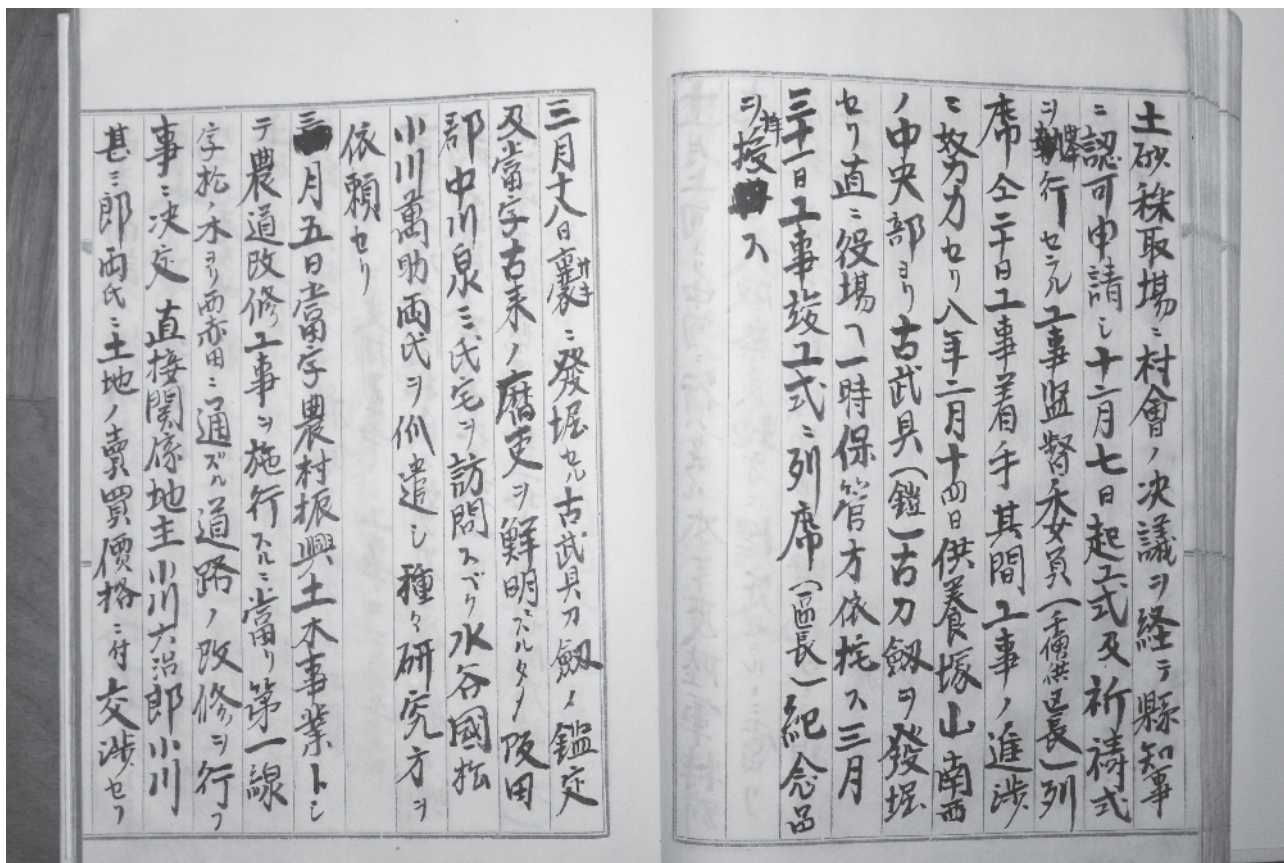 土砂採取場ニ村會ノ決議ヲ経テ縣知事
ニ認可申請シ十二月七日起工式及祈祷式
ヲ擧行セラル工事監督委員(区長)列
席仝二十日工事着手其間工事ノ進渉
ニ努力セリ八年二月十四日供養塚山南西
ノ中央部ヨリ古武具(鎧)古刀劔ヲ發堀
セリ直ニ役場ヘ一時保管方依托ス三月
三十一日工事竣工式ニ列席(區長)紀念品
ヲ拝授ス
三月十八日曩ニ發堀セル古武具刀劔ノ鑑定
及當字古来ノ歴史ヲ鮮明スルタメ阪田
郡中川泉三氏宅ヲ訪問スベク水谷國松
小川萬助両氏ヲ派遣シ種々研究方ヲ
依頼セリ
三月五日當字農村振興土木事業トシ
テ農道改修工事ヲ施行スルニ當リ第一線
字松ノ木ヨリ西赤田ニ通ズル道路ノ改修ヲ行フ
事ニ决定直接関係地主小川六治郎小川
甚三郎両氏ニ土地ノ賣買價格ニ付交渉セリ